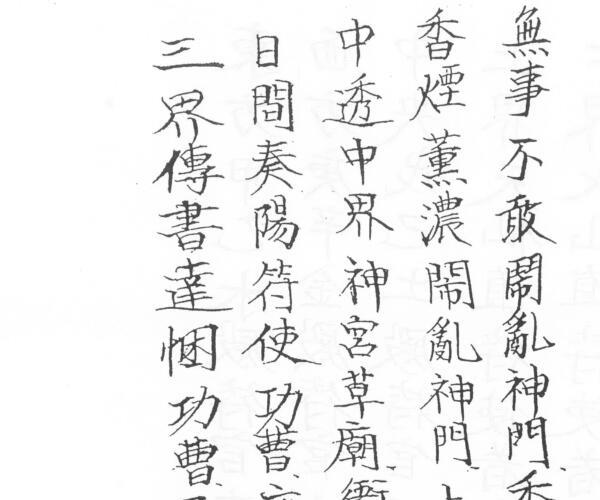 無事不敢鬧亂神門香
香煙薰濃鬧亂神門
中透中界神宮草廟衙
日間奏陽符使功曹
三界傳書達悃功曹